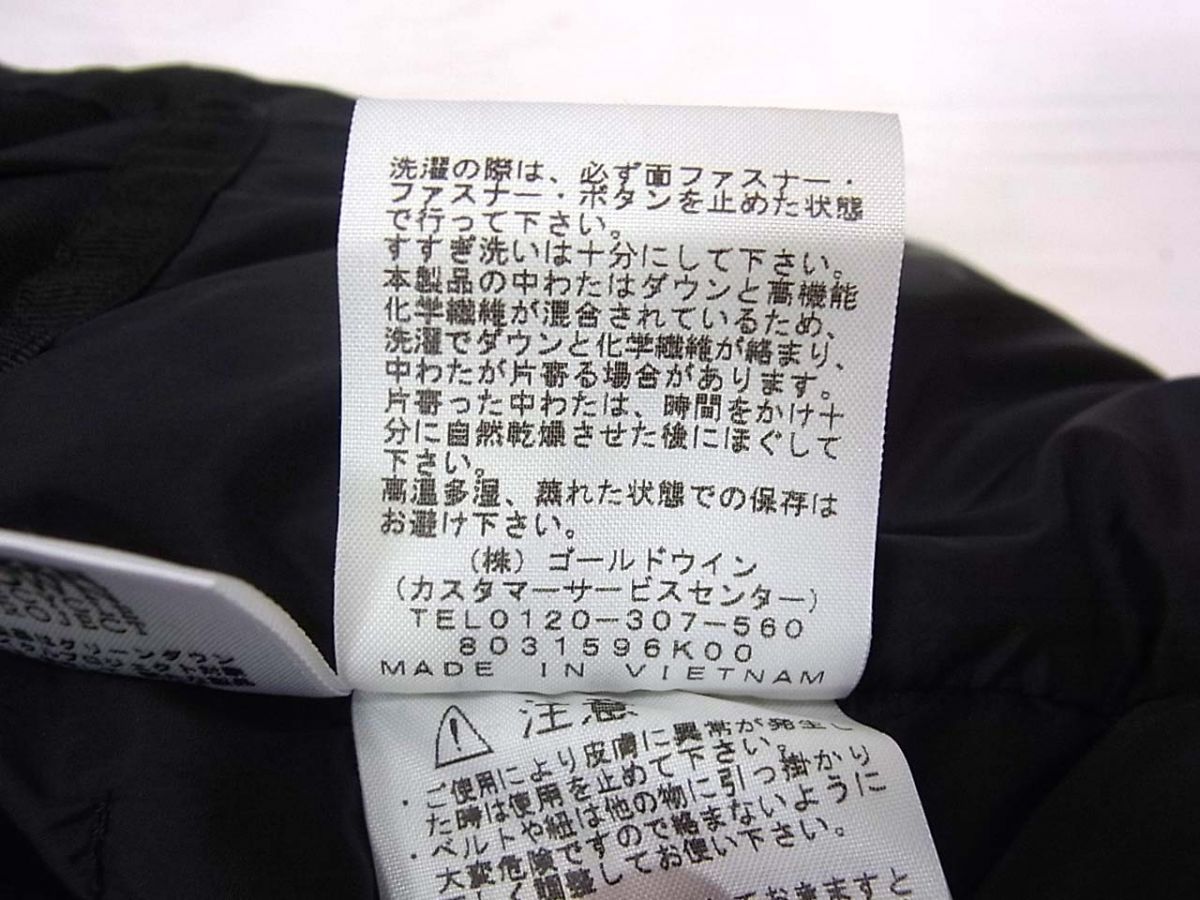 洗濯の際は、必ず面ファスナー・
ファスナー・ボタンを止めた状態
で行って下さい。
すすぎ洗いは十分にして下さい。
本製品の中わたはダウンと高機能
化学繊維が混合されているため、
洗濯でダウンと化学繊維が絡まり、
中わたが片寄る場合があります。
片寄った中わたは、時間をかけ十
分に自然乾燥させた後にほぐして
下さい。
高温多湿、蒸れた状態での保存は
お避け下さい。
(株) ゴールドウイン
(カスタマーサービスセンター)
TEL0120-307-560
8031596K00
MADE IN VIETNAM
注意
・ご使用により皮膚に異常が発生し
た時は使用を止めて下さい。
・ベルトや紐は他の物に引っ掛かり
大変危険ですので絡まないように
しく調整してお使い下さい。
ておきますと
ROJECT
はグリーンダウン